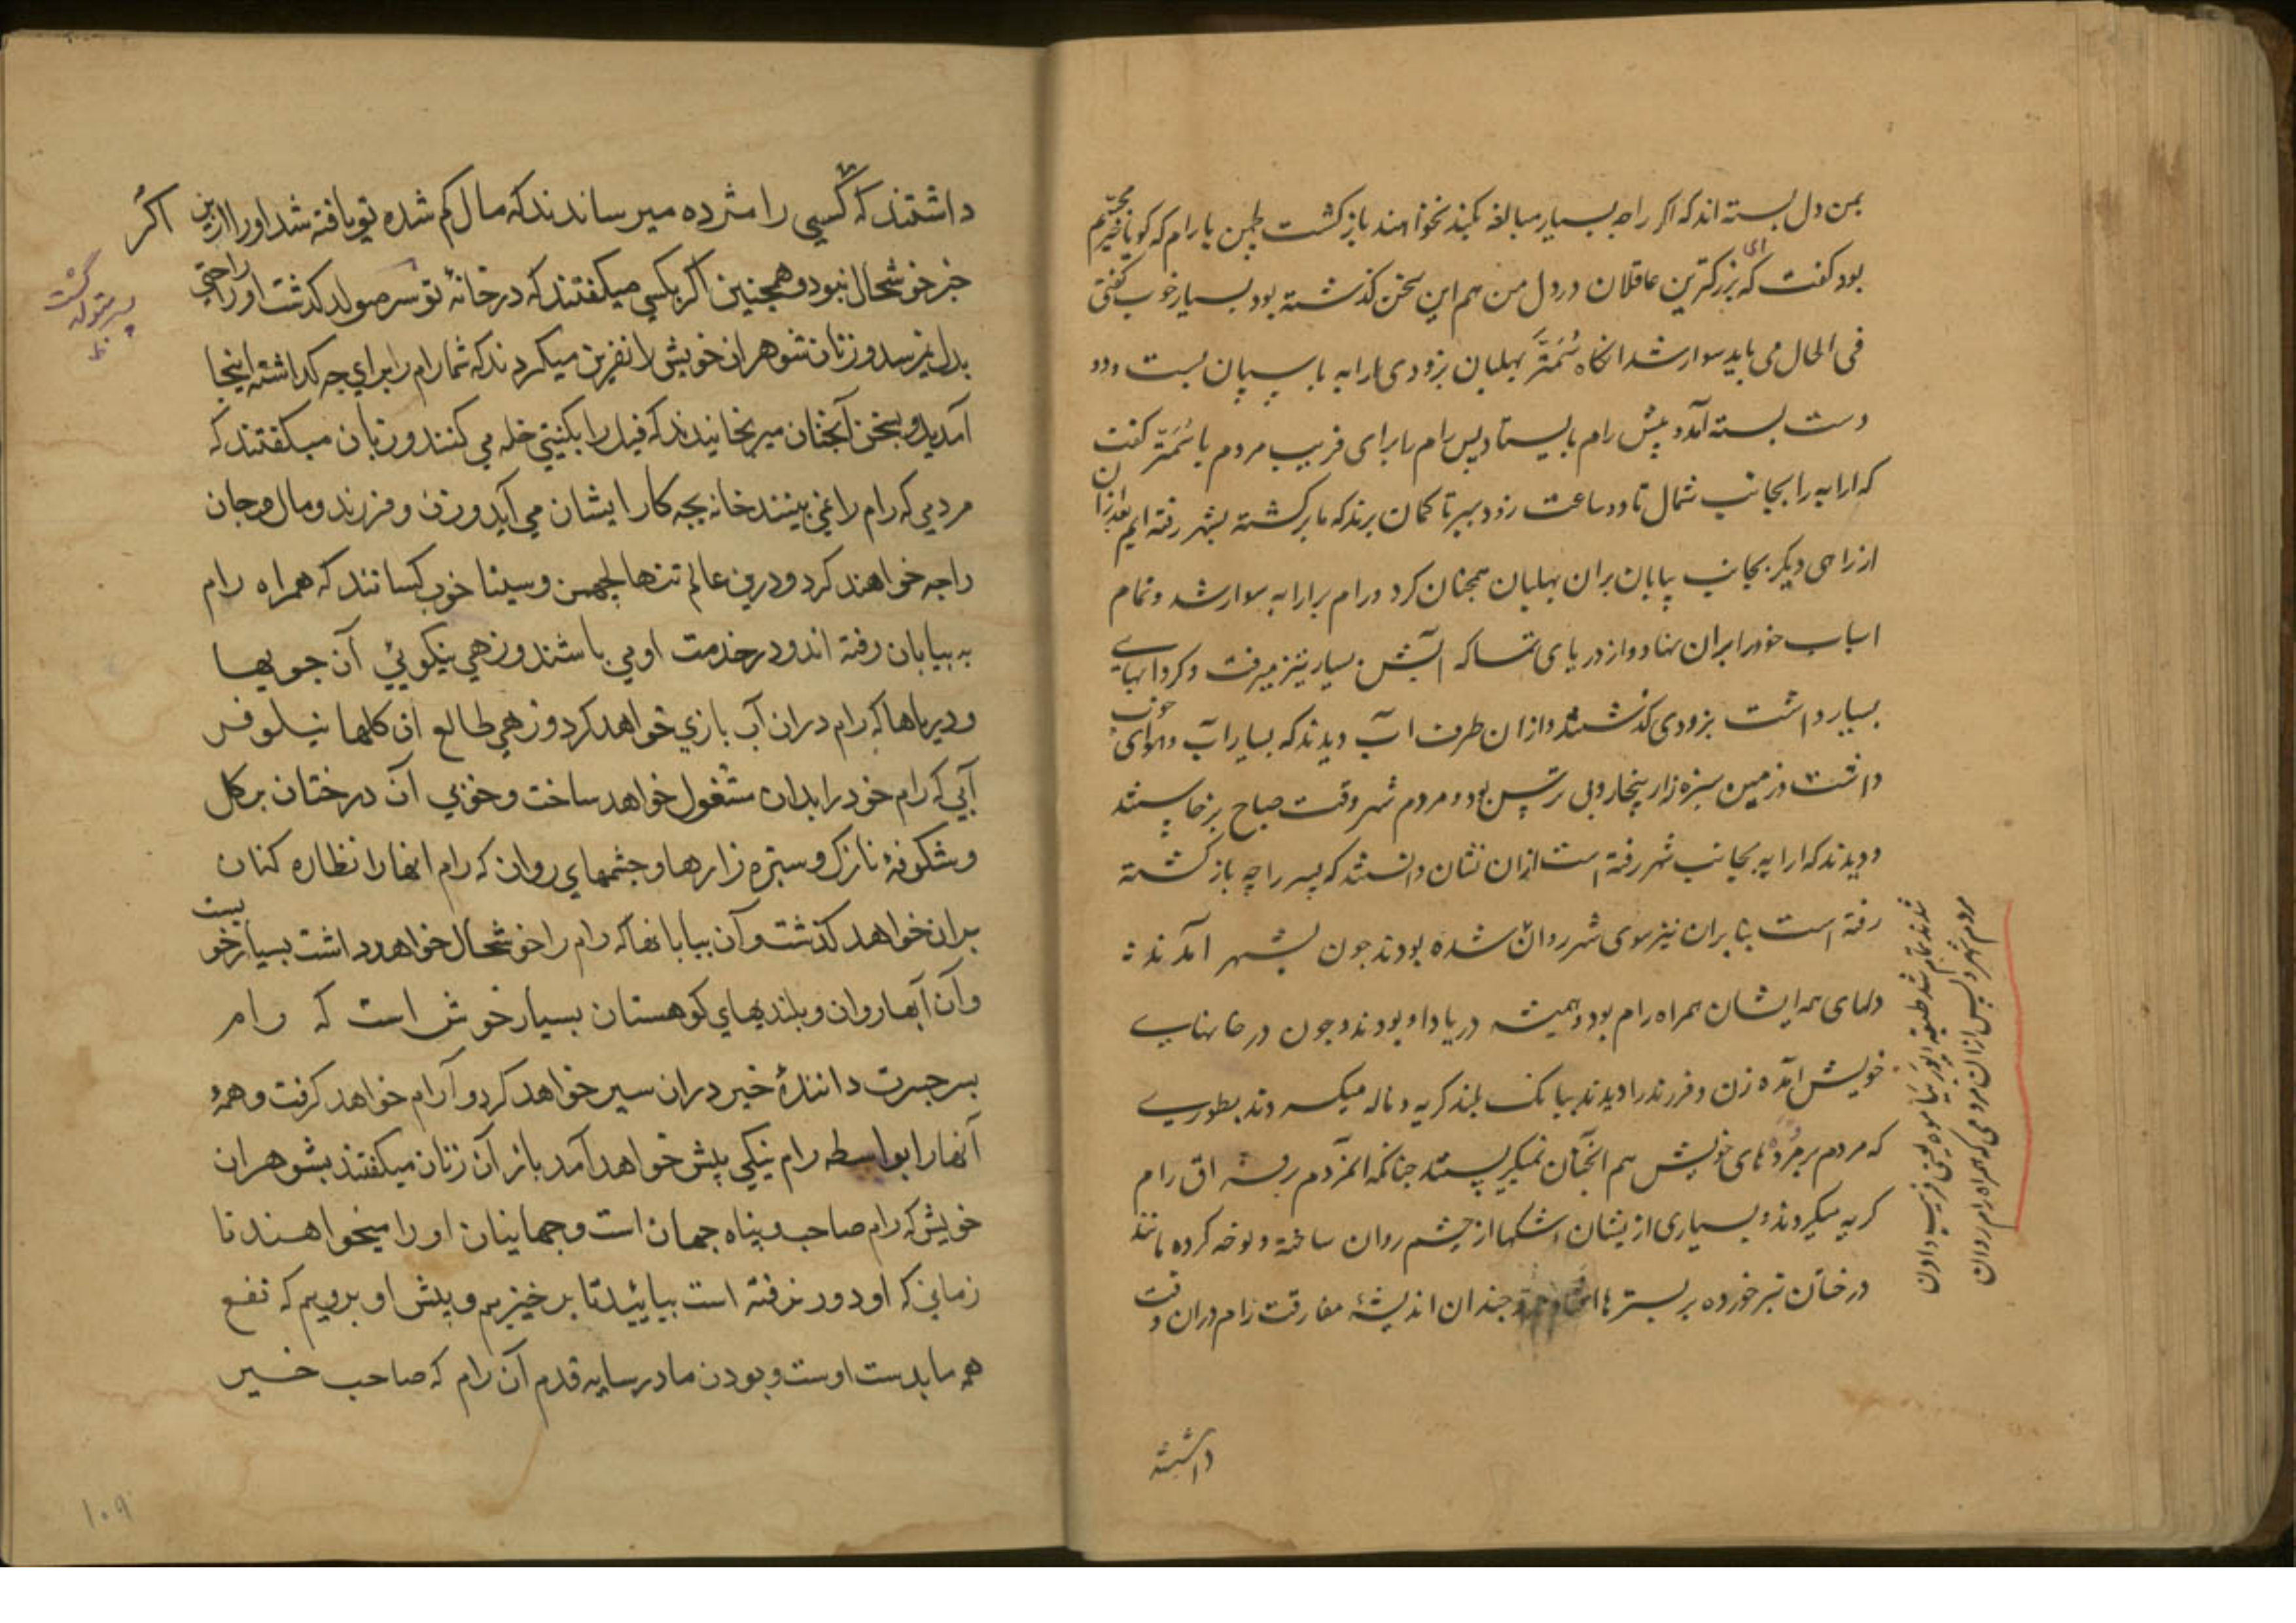 بمن دل بسته اند که اگر راجه بسیار مبالغه بکند نخواهند باز کشت لچمن با رام که کویا خیر مجسّم
بود کفت که ای بزرکترین عاقلان در دل من هم این سخن کذشته بود بسیار خوب کفتی
فی الحال می باید سوار شد انکاه سُمَنتَر بهلبان بزودی ارابه با اسپان بست و دو
دست بسته آمد و پیش رام بایستاد پس رام برای فریب مردم با سُمَنتر کفت
که ارابه را بجانب شمال تا دو ساعت زود ببر تا کمان برند که ما برکشته بشهر رفته ایم بعد ازان
از راهی دیکر بجانب بیابان بران بهلبان همچنان کرد و رام بر ارابه سوار شد و تمام
اسباب خود را بران نهاد و از دریای تمسا که آبش بسیار تیز میرفت و کردابهای
بسیار داشت بزودی کذشتند و ازان طرف آب دیدند که بسیار آب و هوای خوب
داشت و زمین سبزه زار بیخار و بی ترس بود و مردم شهر وقت صباح برخاستند
و دیدند که ارابه بجانب شهر رفته است ازان نشان دانستند که پسر راجه باز کشته
رفته است بنا بران نیز سوی شهر روان شده بودند چون بشهر آمدند
دلهای همه ایشان همراه رام بود و همیشه در یاد او بودند و چون در خانهای
خویش آمده زن و فرزند را دیدند ببانک بلند کریه و ناله میکردند بطوری
که مردم بر مُرده های خویش هم آنچنان نمیکریستند چنانکه آنمردم بفراق رام
کریه میکردند و بسیاری از یشان اشکها از چشم روان ساخته و نوحه کرده مانند
درختان تبر خورده بر بسترها افتادند و چندان اندیشهٔ مفارقت رام دران وقت
داشتند
مردم شهر و پس ازان مردمی که همراه رام روان
شدند تمام شد یعنی فریب دادن
داشتند که اگر کسی را مژده میرساندند که مال کم شده تو یافته شد او را ازین
خبر خوشحال نبود و همچنین اگر بکسی میکفتند که در خانهٔ تو پسر متولد کشت او را راحتی
بدل نمیرسد و زنان شوهران خویش را نفرین میکردند که شما رام را برای چه کذاشته اینجا
آمدید و بسخن آنچنان میرنجانیدند که فیل را بکجک خله می کنند و زنان میکفتند که
مردمی که رام را نمی بینند خانه بچه کار ایشان می آید و زن و فرزند و مال و جان
را چه خواهند کرد و درین عالم تنها لچهمن و سیتا خوب کسانند که همراه رام
به بیابان رفته اند و در خدمت او می باشند و زهی نیکویئ آن جویها
و دریاها که رام دران آب بازی خواهد کرد و زهی طالع آن کلها نیلوفر
آبی که رام خود را بدان مشغول خواهد ساخت و خوبی آن درختان پر کل
و شکوفهٔ نازک و سبزه زارها و چشمهای روان که رام انها را نظاره کنان
بران خواهد کذشت و آن بیابانها که رام را خوشحال خواهد داشت بسیار خوبست
و آن آبها روان و بلندیهای کوهستان بسیار خوش است که رام
پسر جسرت دانندهٔ خیر دران سیر خواهد کرد و آرام خواهد کرفت و همهٔ
آنها را بواسطه رام نیکی پیش خواهد آمد باز آن زنان میکفتند بشوهران
خویش که رام صاحب و پناه جهان است و جهانیان او را میخواهند تا
زمانی که او دور نرفته است بیایئد تا برخیزیم و پیش او برویم که نفع
همه ما بدست اوست و بودن ما در سایه قدم آن رام که صاحب خیر
اگر
پسر متولد کشت
١٠٩